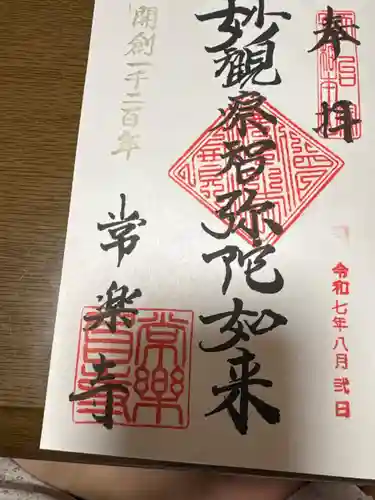 奉拝
令和七年八月弐日
妙観察智弥陀如来
開創一千二百年
常楽寺
常樂寺